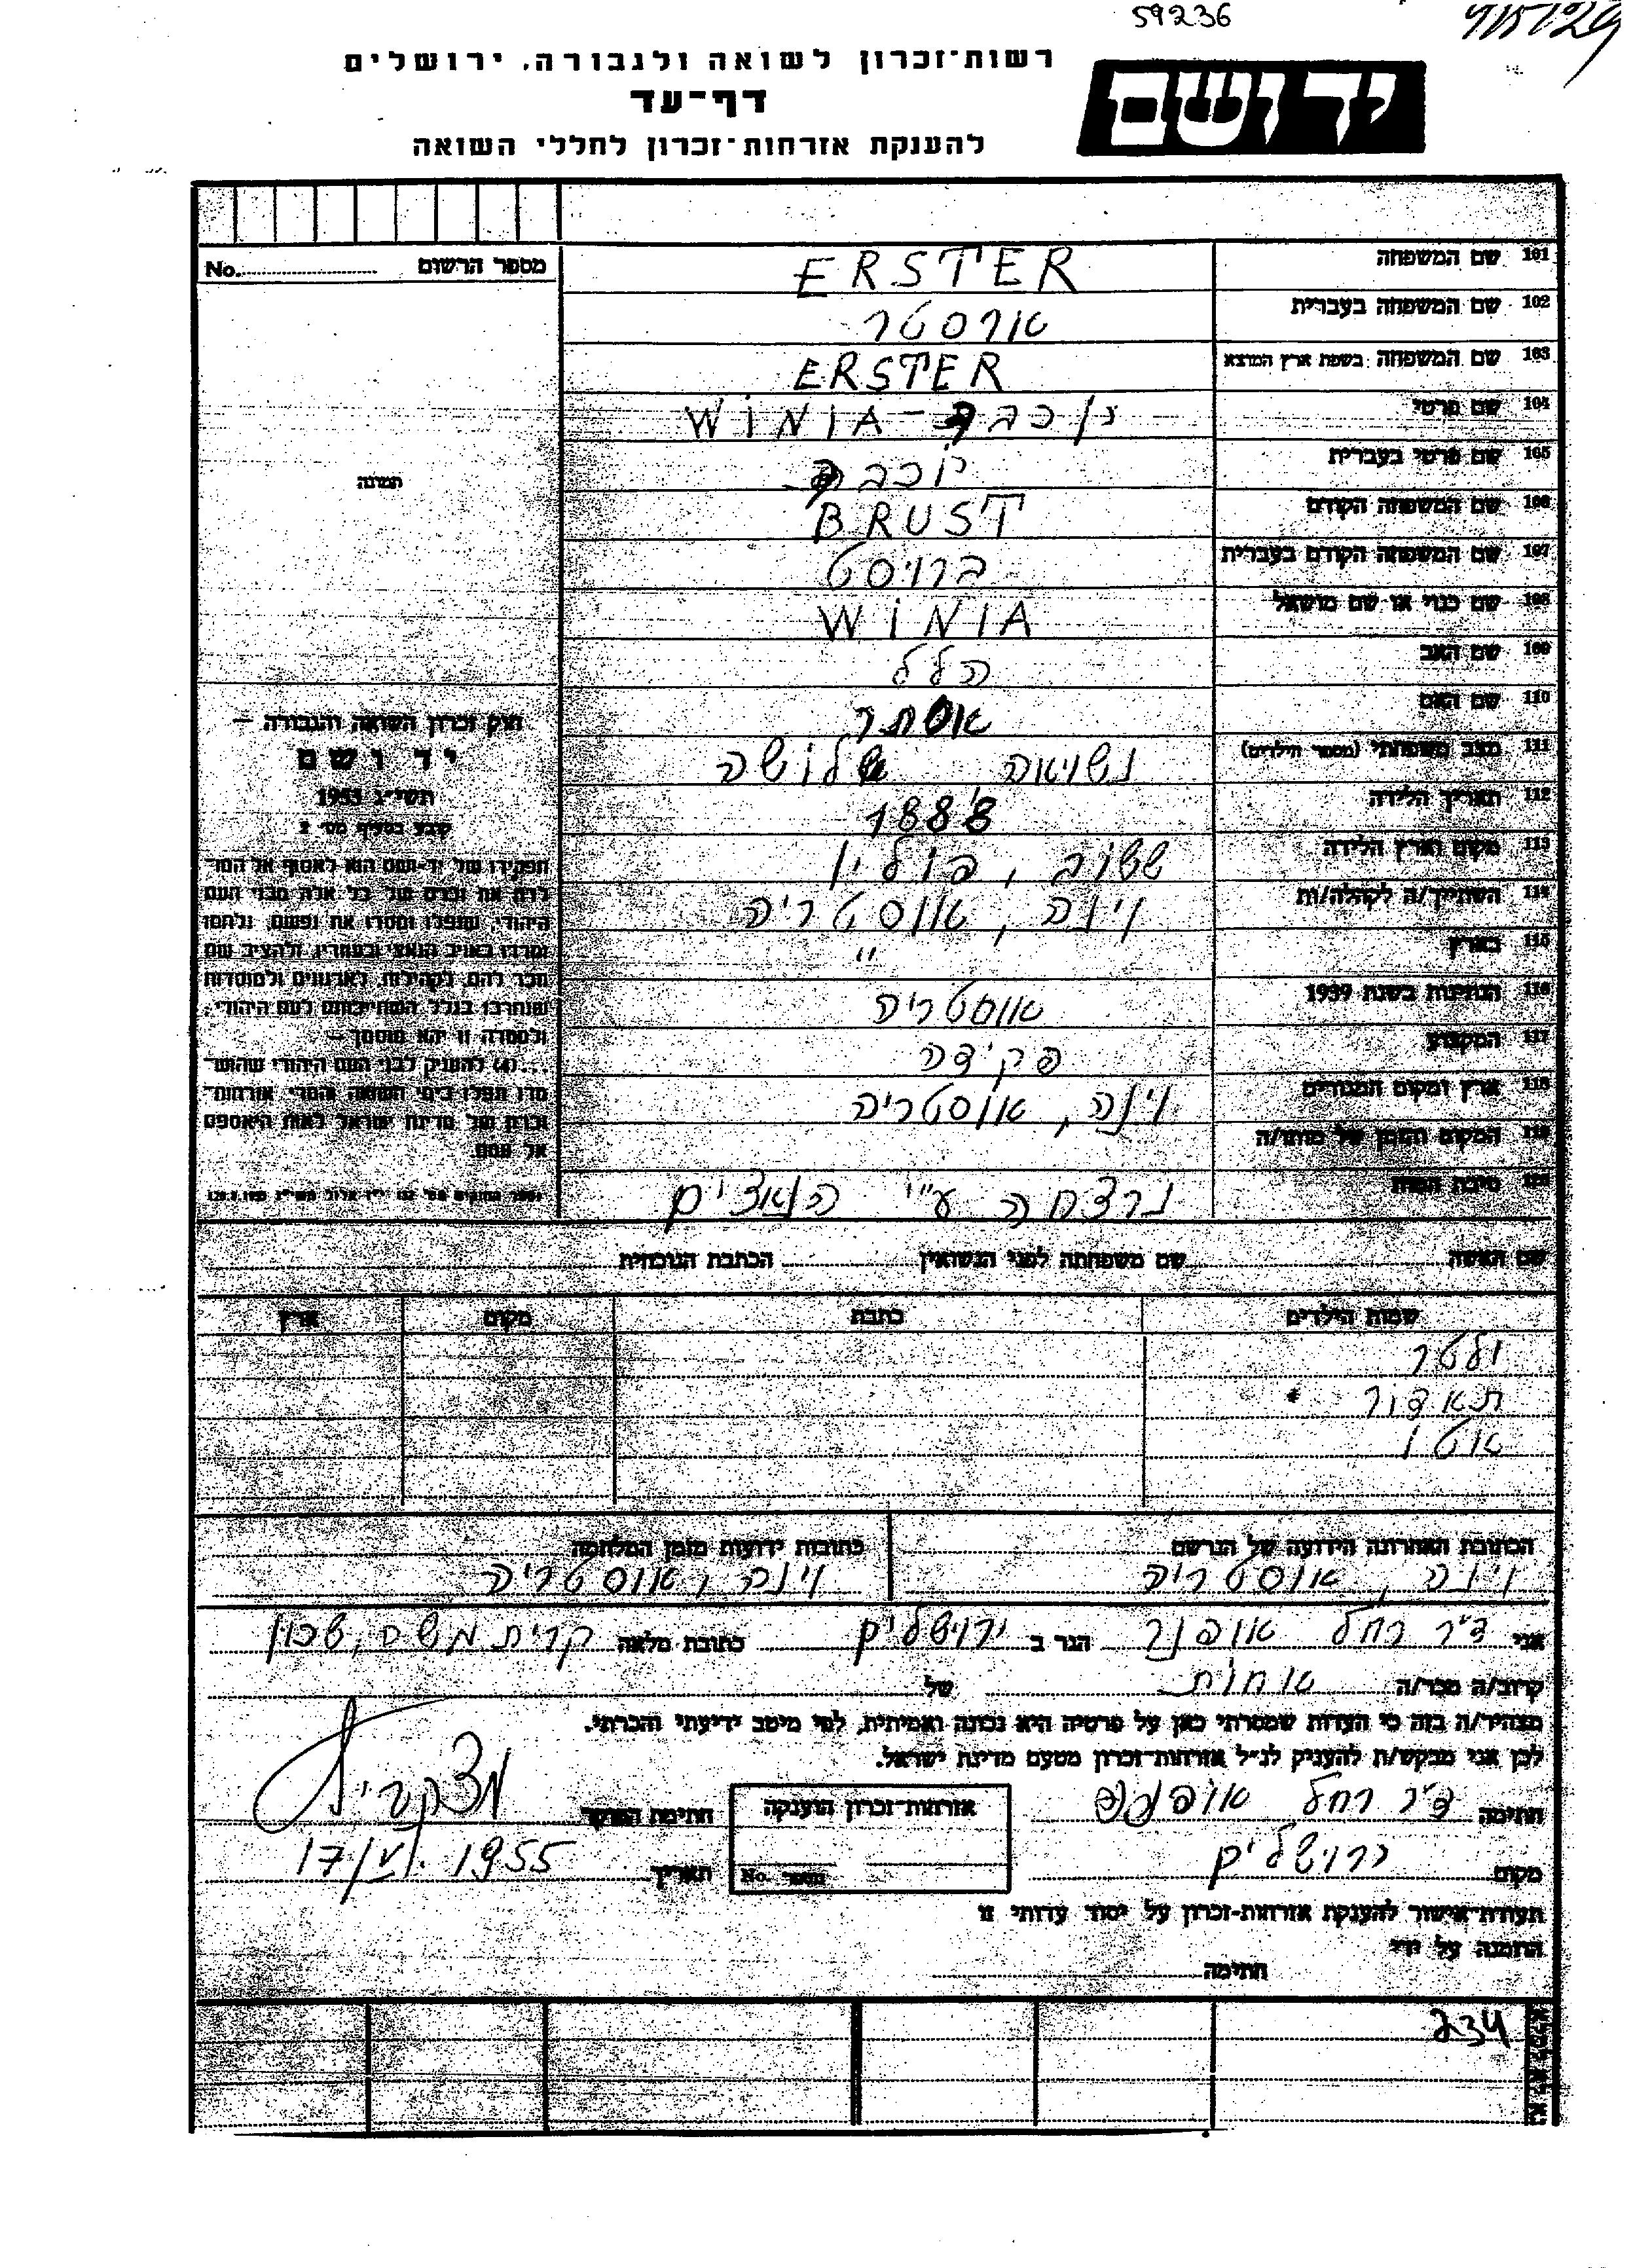 59236
רשות-זכרון לשואה ולגבורה, ירושלים
דף-עד
להענקת אזרחות-זכרון לחללי השואה
יד ושם
מספר הרשום No.
101 שם המשפחה ERSTER
102 שם המשפחה בעברית ארסטר
103 שם המשפחה בשפת ארץ המוצא ERSTER
104 שם פרטי יוכבד - WINIA
105 שם פרטי בעברית יוכבד
106 שם המשפחה הקודם BRUST
107 שם המשפחה הקודם בעברית ברוסט
108 שם כנוי או שם מושאל WINIA
109 שם האב הלל
110 שם האם אסתר
111 מצב משפחתי (מספר הילדים) נשואה שלושה
112 תאריך הלידה 1888
113 מקום וארץ הלידה פולין
114 השתייך/ה לקהלה/ות וינה, אוסטריה
115 בארץ "
116 הנתינות בשנת 1939 אוסטריה
117 המקצוע פקידה
118 ארץ ומקום המגורים וינה, אוסטריה
119 המקום והזמן של מותו/ה
120 סיבת המות נרצחה ע"י הנאצים
תמונה
חוק זכרון השואה והגבורה –
יד ושם
תשי"ג 1953
קובע בסעיף מס' 2
תפקידו של יד-ושם הוא לאסוף אל המו-
לדת את זכרם של כל אלה מבני העם
היהודי, שנפלו ומסרו את נפשם, נלחמו
ומרדו באויב הנאצי ובעוזריו, ולהציב שם
וזכר להם, לקהילות, לארגונים ולמוסדות
שנחרבו בגלל השתייכותם לעם היהודי,
ולמטרה זו יהא מוסמך –
...(4) להעניק לבני העם היהודי שהוש-
מדו ונפלו בימי השואה והמרי אזרחות-
זכרון של מדינת ישראל לאות היאספם
אל עמם.
שם האשה שם משפחתה לפני הנשואין הכתבת הנוכחית
שמות הילדים כתבת מקום ארץ
ולטר
תאדור
אוטו
הכתובת האחרונה הידועה של הנרשם כתובות ידועות מזמן המלחמה
וינה, אוסטריה וינה, אוסטריה
אני ד"ר רחל אופנר הגר ב ירושלים כתובת מלאה קרית משה, שכון
קרוב/ה מכר/ה אחות של
מצהיר/ה בזה כי העדות שמסרתי כאן על פרטיה היא נכונה ואמיתית, לפי מיטב ידיעתי והכרתי.
לכן אני מבקש/ת להעניק לנ"ל אזרחות-זכרון מטעם מדינת ישראל.
חתימה ד"ר רחל אופנר אזרחות-זכרון הוענקה חתימת הפוקד
מקום ירושלים מספר No. תאריך 17/VI. 1955
תעודת-אישור להענקת אזרחות-זכרון על יסוד עדותי זו
הוזמנה על ידי
חתימה
234